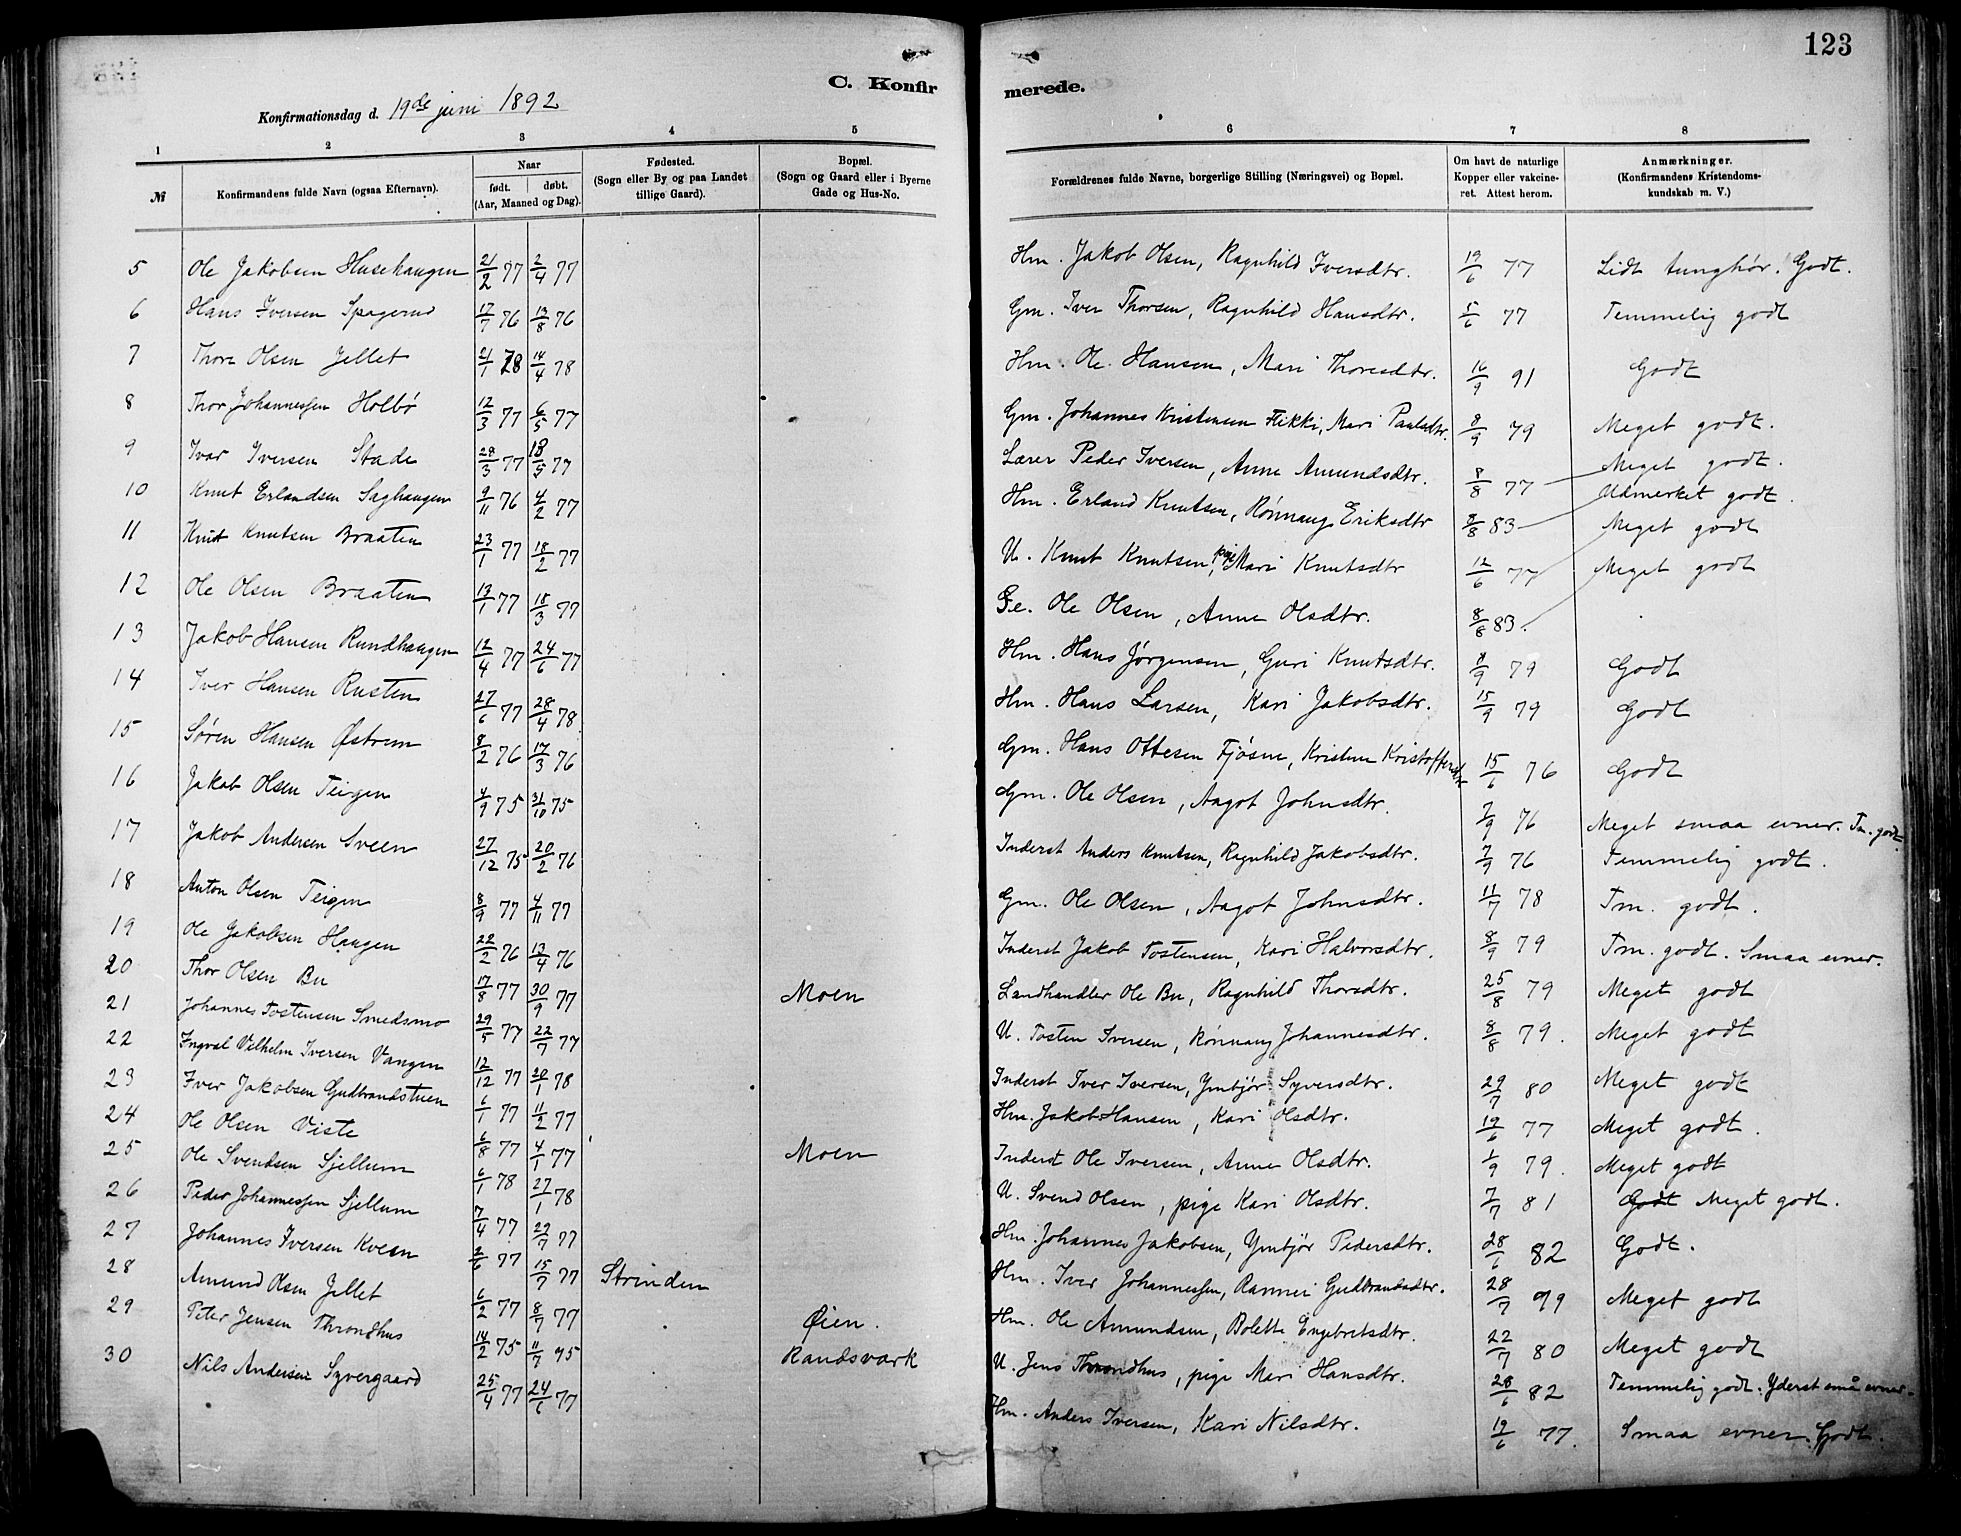 123
C. Konfir
merede.
Konfirmationsdag d. 19de juni 1892
1 2 3 4 5 6 7 8
№ Konfirmandens fulde Navn (ogsaa Efternavn). Naar født. døbt. (Aar, Maaned og Dag). Fødested. (Sogn eller By og paa Landet tillige Gaard). Bopæl. (Sogn og Gaard eller i Byerne Gade og Hus-No. Forældrenes fulde Navne, borgerlige Stilling (Næringsvei) og Bopæl. Om havt de naturlige Kopper eller vakcineret. Attest herom. Anmærkninger. (Konfirmandens Kristendomskundskab m. V.)
5 Ole Jakobsen Husehaugen 21/2 77 2/4 77 Hm. Jakob Olsen, Ragnhild Iversdtr. 19/6 77 Lidt tunghør. Godt.
6 Hans Iversen Spagerud 17/7 76 13/8 76 Gm. Iver Thorsen, Ragnhild Hansdtr. 5/6 77 Temmelig godt
7 Thore Olsen Jellet 21/1 78 14/4 78 Hm. Ole Hansen, Mari Thoresdtr. 16/9 91 Godt
8 Thor Johannessen Holbø 12/3 77 6/5 77 Gm. Johannes Kristensen Flikki, Mari Paulsdtr. 8/9 79 Meget godt.
9 Ivar Iversen Stade 28/3 77 13/5 77 Lærer Peder Iversen, Anne Amundsdtr. 8/8 77 Meget godt.
10 Knut Erlandsen Saghaugen 9/11 76 4/2 77 Hm. Erland Knutsen, Rønnaug Eriksdtr 8/8 83 Udmerket godt.
11 Knut Knutsen Braaten 23/1 77 18/2 77 U. Knut Knutsen, pige Mari Knutsdtr 12/6 77 Meget godt
12 Ole Olsen Braaten 13/1 77 18/3 77 Ge. Ole Olsen, Anne Olsdtr. 8/8 83. Meget godt
13 Jakob Hansen Rundhaugen 12/4 77 24/6 77 Hm. Hans Jørgensen, Guri Knutsdtr. 8/9 79 Godt
14 Iver Hansen Rusten 27/6 77 28/4 78 Hm. Hans Larsen, Kari Jakobsdtr. 15/9 79 Godt
15 Søren Hansen Østrem 8/2 76 17/3 76 Gm. Hans Ottesen Fjøsne, Kristine Kristoffersdtr 15/6 76 Godt
16 Jakob Olsen Teigen 4/9 75 31/10 75 Gm. Ole Olsen, Aagot Johnsdtr. 7/9 76 Meget smaa evner. Tm. godt.
17 Jakob Andersen Sveen 27/12 75 20/2 76 Inderst Anders Knutsen, Ragnhild Jakobsdtr. 7/9 76 Temmelig godt.
18 Anton Olsen Teigen 8/9 77 4/11 77 Gm. Ole Olsen, Aagot Johnsdtr. 11/7 78 Tm. godt.
19 Ole Jakobsen Haugen 22/2 76 13/4 76 Inderst Jakob Tostensen, Kari Halvorsdtr. 8/9 79 Tm. godt. Smaa evner.
20 Thor Olsen Bu 17/8 77 30/9 77 Moen Landhandler Ole Bu, Ragnhild Thorsdtr. 25/8 79 Meget godt
21 Johannes Tostensen Smedsmo 29/5 77 22/7 77 U. Tosten Iversen, Rønnaug Johannesdtr. 8/8 79. Meget godt
22 Ingval Vilhelm Iversen Vangen 12/12 77 20/1 78 Inderst Iver Iversen, Ymbjør Syversdtr. 29/7 80 Meget godt
23 Iver Jakobsen Gudbrandstuen 6/1 77 11/2 77 Hm. Jakob Hansen, Kari Olsdtr. 19/6 77 Meget godt.
24 Ole Olsen Viste 6/8 77 4/1 77 Moen Inderst Ole Iversen, Anne Olsdtr. 1/9 79. Meget godt
25 Ole Svendsen Sjellum 6/1 78 27/1 78 U. Svend Olsen, pige Kari Olsdtr. 7/7 81 Godt Meget godt.
26 Peder Johannessen Sjellum 7/4 77 29/7 77 Hm. Johannes Jakobsen, Ymbjør Pedersdtr. 28/6 82 Godt.
27 Johannes Iversen Kveen 2/6 77 15/7 77 Strinden Hm. Iver Johannessen, Rannei Gudbrandsdtr. 28/7 79 Meget godt
28 Amund Olsen Jellet 6/2 77 8/7 77 Hm. Ole Amundsen, Bolette Engebretsdtr. 22/7 80 Meget godt
29 Peter Jensen Throndhus 14/2 75 11/7 75 Øien. U. Jens Throndhus, pige Mari Hansdtr. 28/6 82 Temmelig godt. Yderst små evner.
30 Nils Andersen Syvergaard 25/4 77 24/6 77 Randsvark Hm. Anders Iversen, Kari Nilsdtr. 19/6 77. Smaa evner. Godt.